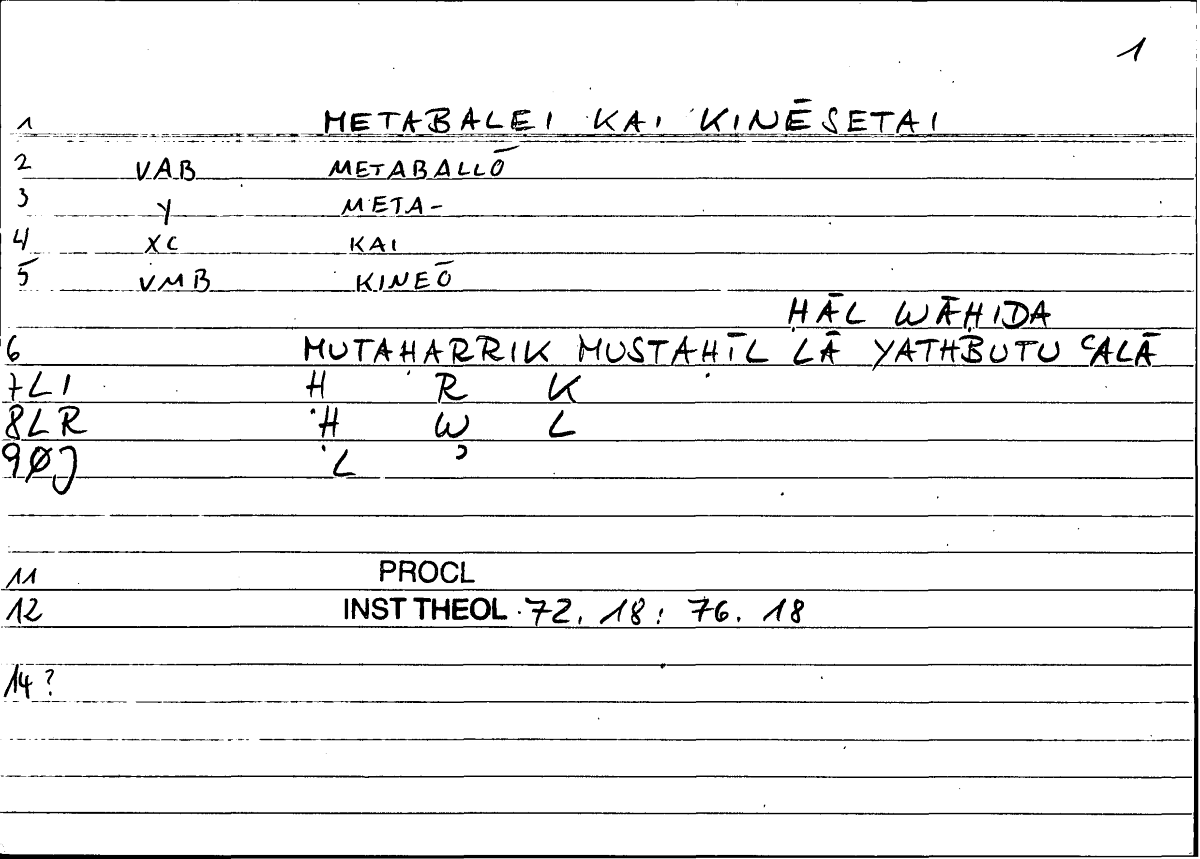 1
1 METABALEI KAI KINĒSETAI
2 VAB METABALLŌ
3 Y META-
4 XC KAI
5 VMB KINEŌ
ḤĀL WĀḤIDA
6 MUTAḤARRIK MUSTAḤĪL LĀ YATHBUTU ʿALĀ
7LI Ḥ R K
8LR Ḥ W L
9ØJ L ʾ
11 PROCL
12 INST THEOL 72. 18 : 76. 18
14?